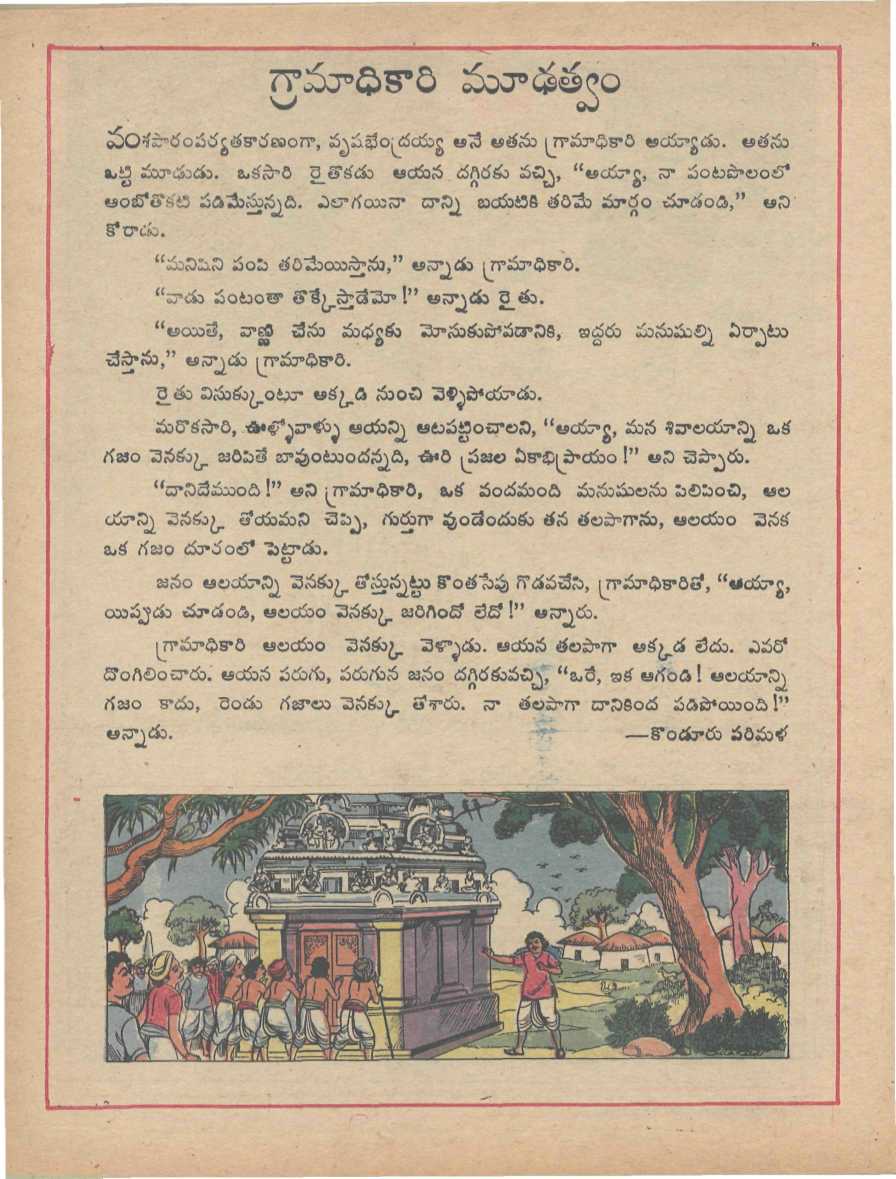 గ్రామాధికారి మూఢత్వం
వంశపారంపర్యతకారణంగా, వృషభేంద్రయ్య అనే అతను గ్రామాధికారి అయ్యాడు. అతను
ఒట్టి మూఢుడు. ఒకసారి రైతొకడు ఆయన దగ్గిరకు వచ్చి, “అయ్యా, నా పంటపొలంలో
ఆంబోతొకటి పడిమేస్తున్నది. ఎలాగయినా దాన్ని బయటికి తరిమే మార్గం చూడండి,” అని
కోరాడు.
“మనిషిని పంపి తరిమేయిస్తాను,” అన్నాడు గ్రామాధికారి.
“వాడు పంటంతా తొక్కేస్తాడేమో!” అన్నాడు రైతు.
“అయితే, వాణ్ణి చేను మధ్యకు మోసుకుపోవడానికి, ఇద్దరు మనుషుల్ని ఏర్పాటు
చేస్తాను,” అన్నాడు గ్రామాధికారి.
రైతు విసుక్కుంటూ అక్కడి నుంచి వెళ్ళిపోయాడు.
మరొకసారి, ఊళ్ళోవాళ్ళు ఆయన్ని ఆటపట్టించాలని, “అయ్యా, మన శివాలయాన్ని ఒక
గజం వెనక్కు జరిపితే బావుంటుందన్నది, ఊరి ప్రజల ఏకాభిప్రాయం!” అని చెప్పారు.
“దానిదేముంది!” అని గ్రామాధికారి, ఒక వందమంది మనుషులను పిలిపించి, ఆల
యాన్ని వెనక్కు తోయమని చెప్పి, గుర్తుగా వుండేందుకు తన తలపాగాను, ఆలయం వెనక
ఒక గజం దూరంలో పెట్టాడు.
జనం ఆలయాన్ని వెనక్కు తోస్తున్నట్టు కొంతసేపు గొడవచేసి, గ్రామాధికారితో, “అయ్యా,
యిప్పుడు చూడండి, ఆలయం వెనక్కు జరిగిందో లేదో!” అన్నారు.
గ్రామాధికారి ఆలయం వెనక్కు వెళ్ళాడు. ఆయన తలపాగా అక్కడ లేదు. ఎవరో
దొంగిలించారు. ఆయన పరుగు, పరుగున జనం దగ్గిరకువచ్చి, “ఒరే, ఇక ఆగండి! ఆలయాన్ని
గజం కాదు, రెండు గజాలు వెనక్కు తోశారు. నా తలపాగా దానికింద పడిపోయింది!”
అన్నాడు. —కొండూరు పరిమళ